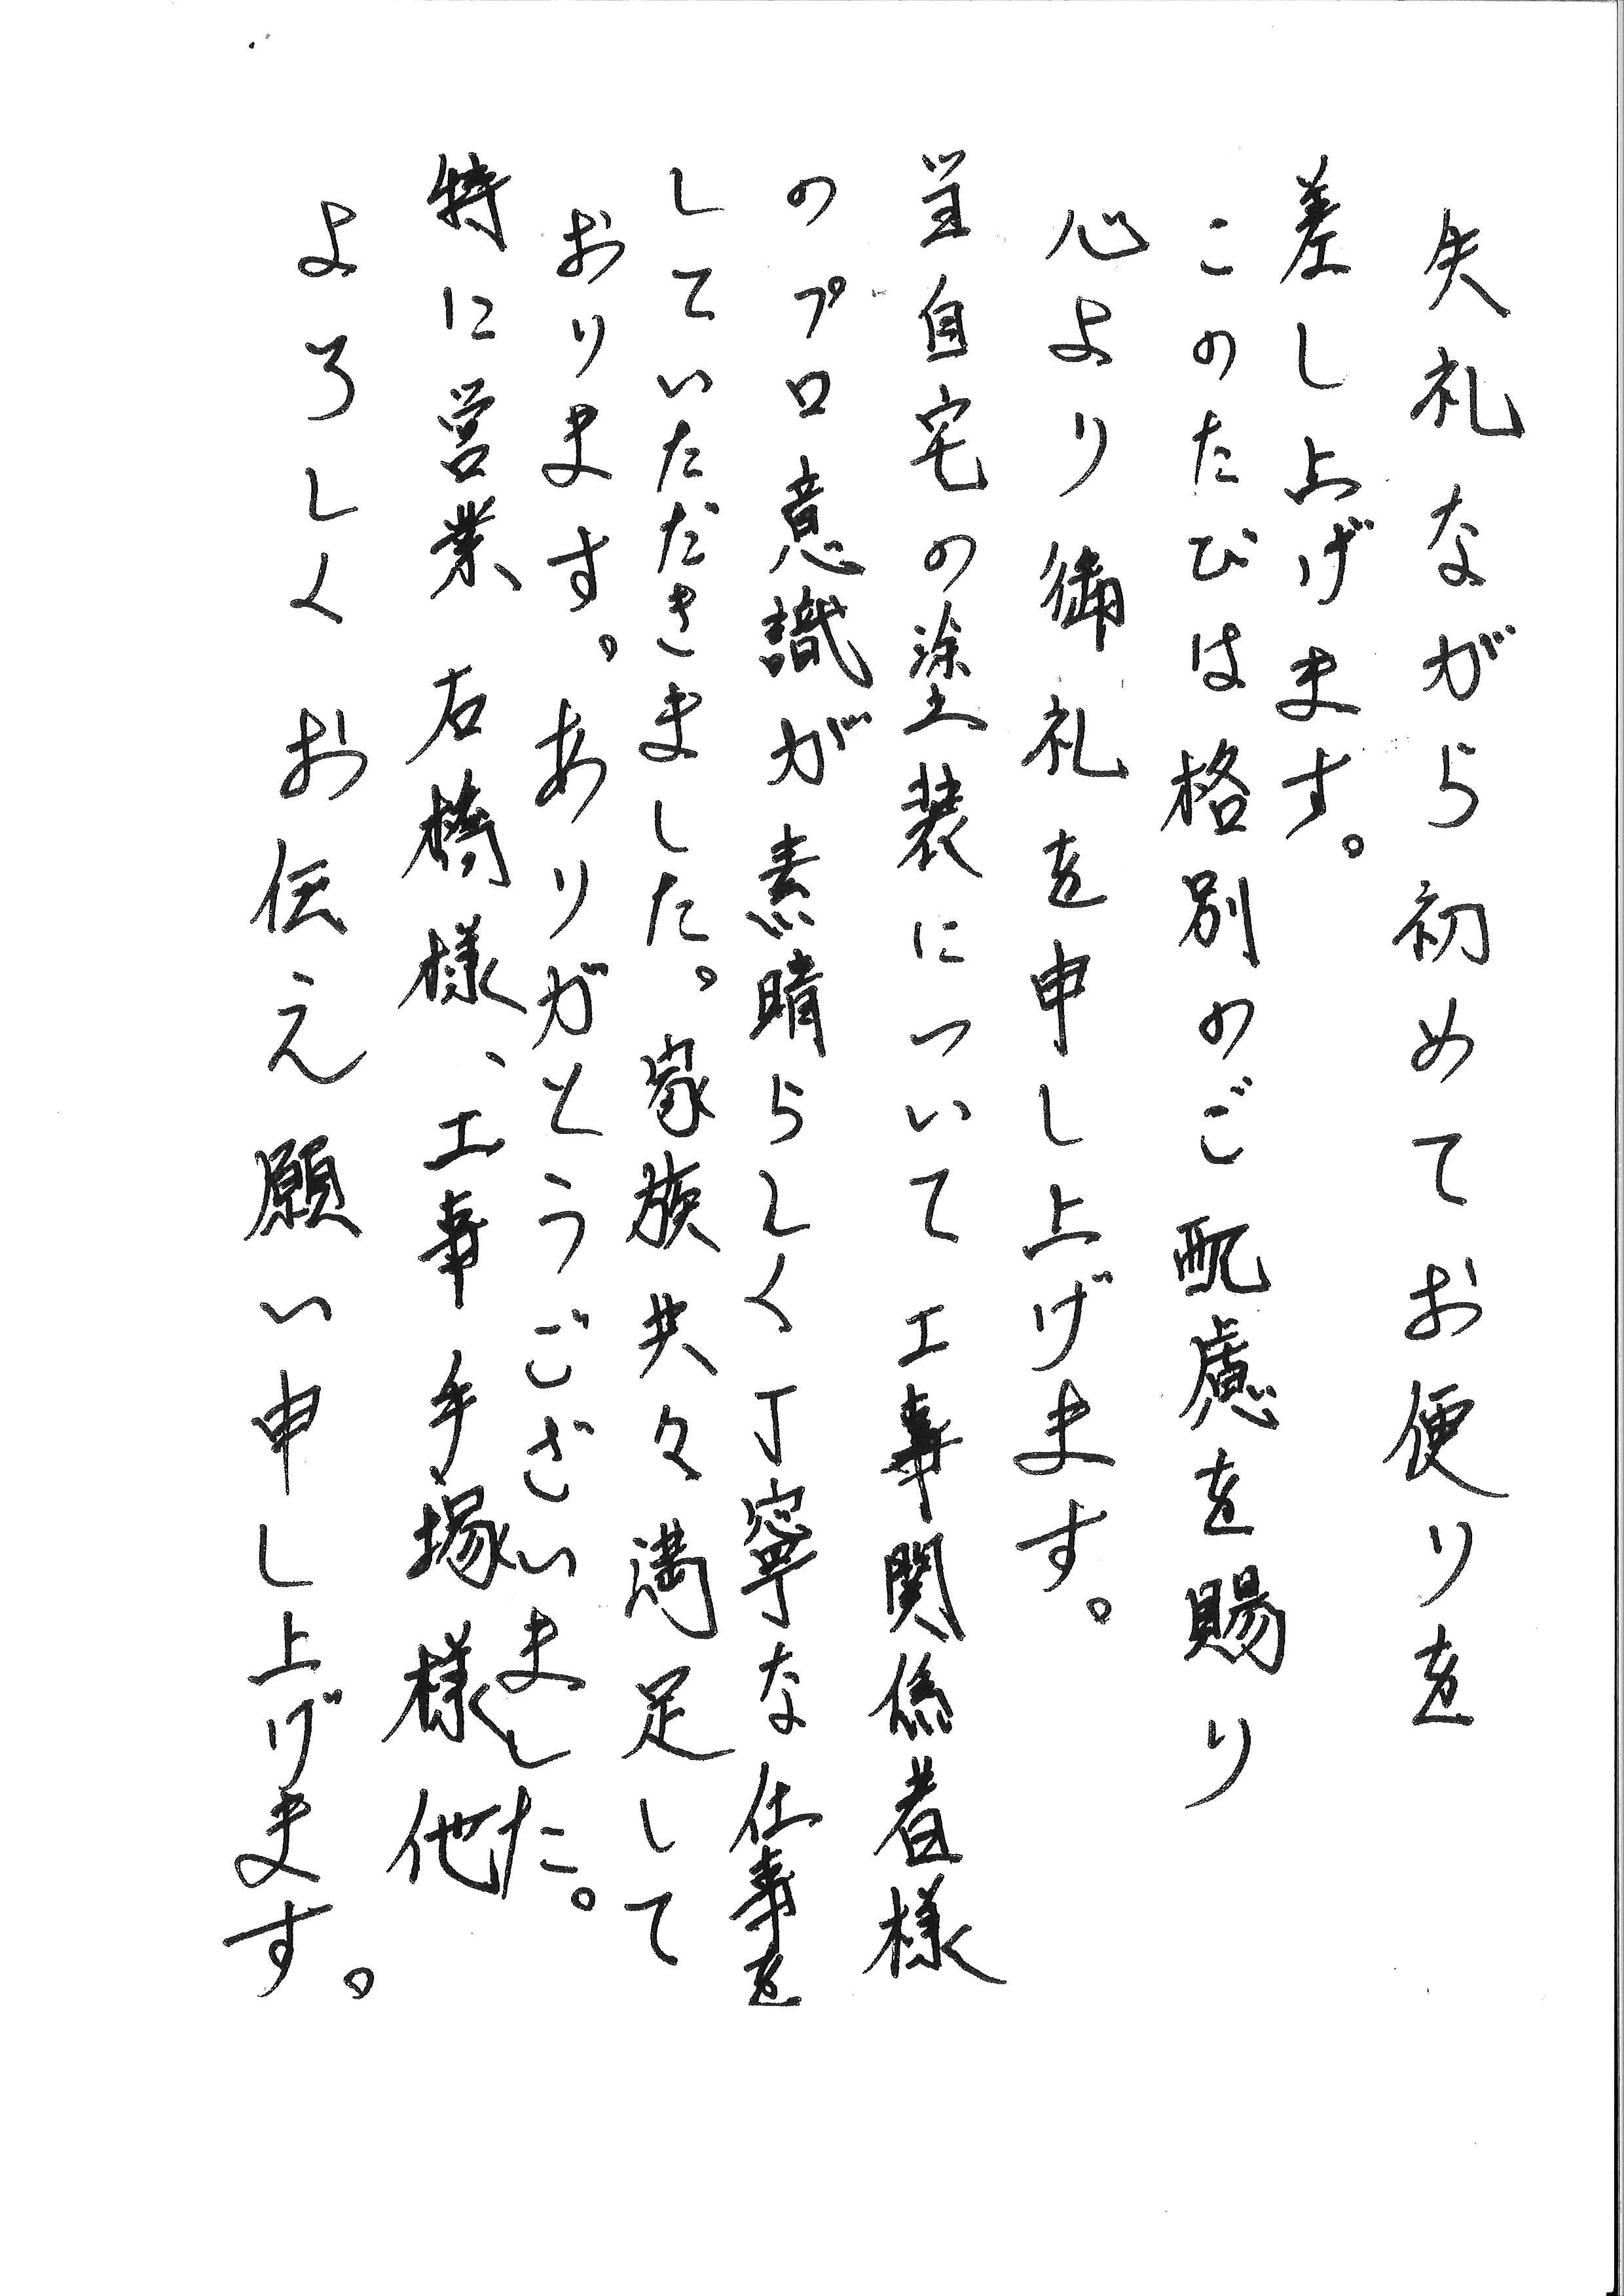 失礼ながら初めてお便りを
差し上げます。
このたびは格別のご配慮を賜り
心より御礼を申し上げます。
当自宅の塗装について工事関係者様
のプロ意識が素晴らしく丁寧な仕事を
していただきました。家族共々満足して
おります。ありがとうございました。
特に営業 石橋様、工事 手塚様他
よろしくお伝え願い申し上げます。